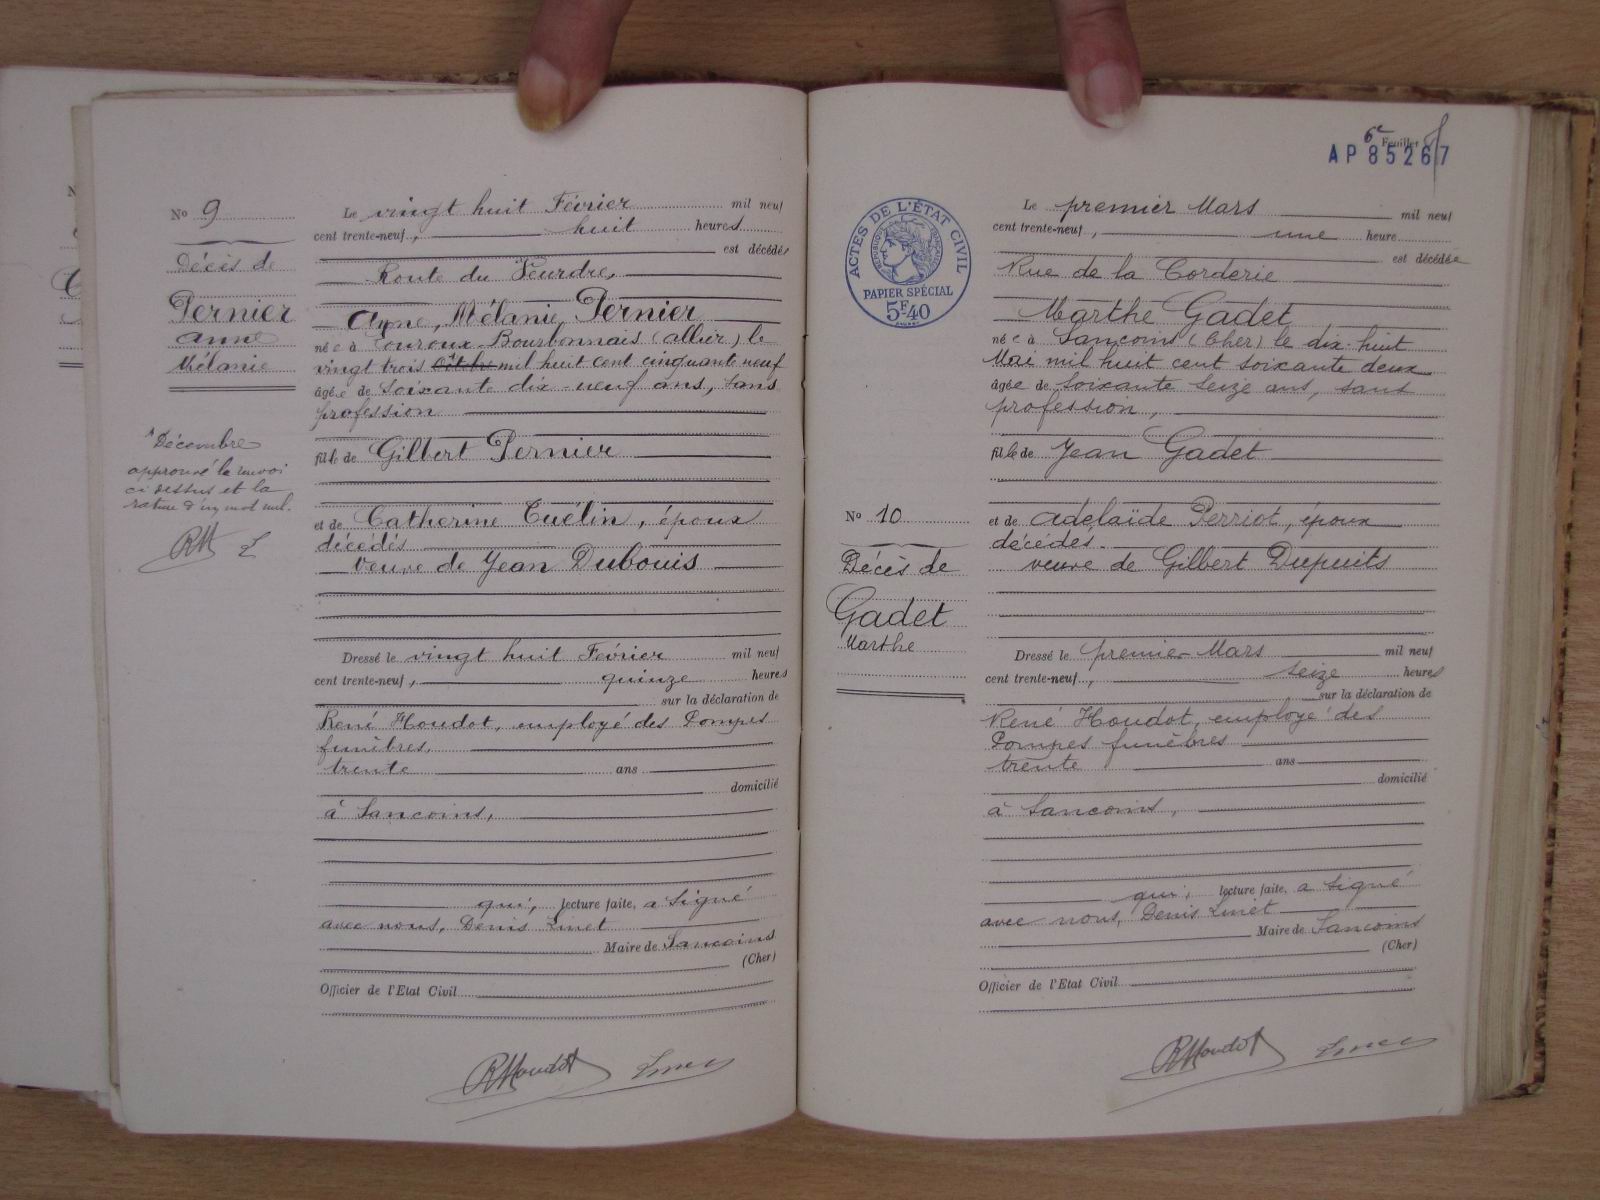 No 9
Décès de
Pernier
Anne
Mélanie
Décembre
approuvé le renvoi
ci dessus et la
rature d'un mot nul.
RH L
Le vingt huit Février mil neuf
cent trente-neuf, huit heures
est décédée
Route du Veurdre,
Anne, Mélanie Pernier
née à Couroux-Bourbonnais (Allier) le
vingt trois Octobre mil huit cent cinquante neuf
âgée de soixante dix-neuf ans, sans
profession
fille de Gilbert Pernier
et de Catherine Tuélin, époux
décédés
veuve de Jean Dubouis
Dressé le vingt huit Février mil neuf
cent trente-neuf, quinze heures
sur la déclaration de
René Houdot, employé des Pompes
funèbres,
trente ans
domicilié
à Sancoins,
qui, lecture faite, a signé
avec nous, Denis Limet
Maire de Sancoins
(Cher)
Officier de l'Etat Civil
RHoudot Limet
6e Feuillet
AP 85267
ACTES DE L'ÉTAT CIVIL
RÉPUBLIQUE FRANÇAISE
PAPIER SPÉCIAL
5F40
No 10
Décès de
Gadet
Marthe
Le premier Mars mil neuf
cent trente-neuf, une heure
est décédée
Rue de la Corderie
Marthe Gadet
née à Sancoins (Cher) le dix-huit
Mai mil huit cent soixante deux
âgée de soixante seize ans, sans
profession,
fille de Jean Gadet
et de Adelaïde Perriot, époux
décédés.
veuve de Gilbert Dupuits
Dressé le premier Mars mil neuf
cent trente-neuf, seize heures
sur la déclaration de
René Houdot, employé des
Pompes funèbres
trente ans
domicilié
à Sancoins,
qui, lecture faite, a signé
avec nous, Denis Limet
Maire de Sancoins
(Cher)
Officier de l'Etat Civil
RHoudot Limet